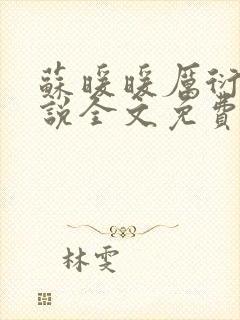 蘇暖暖厲衍
說全文免費
林雯